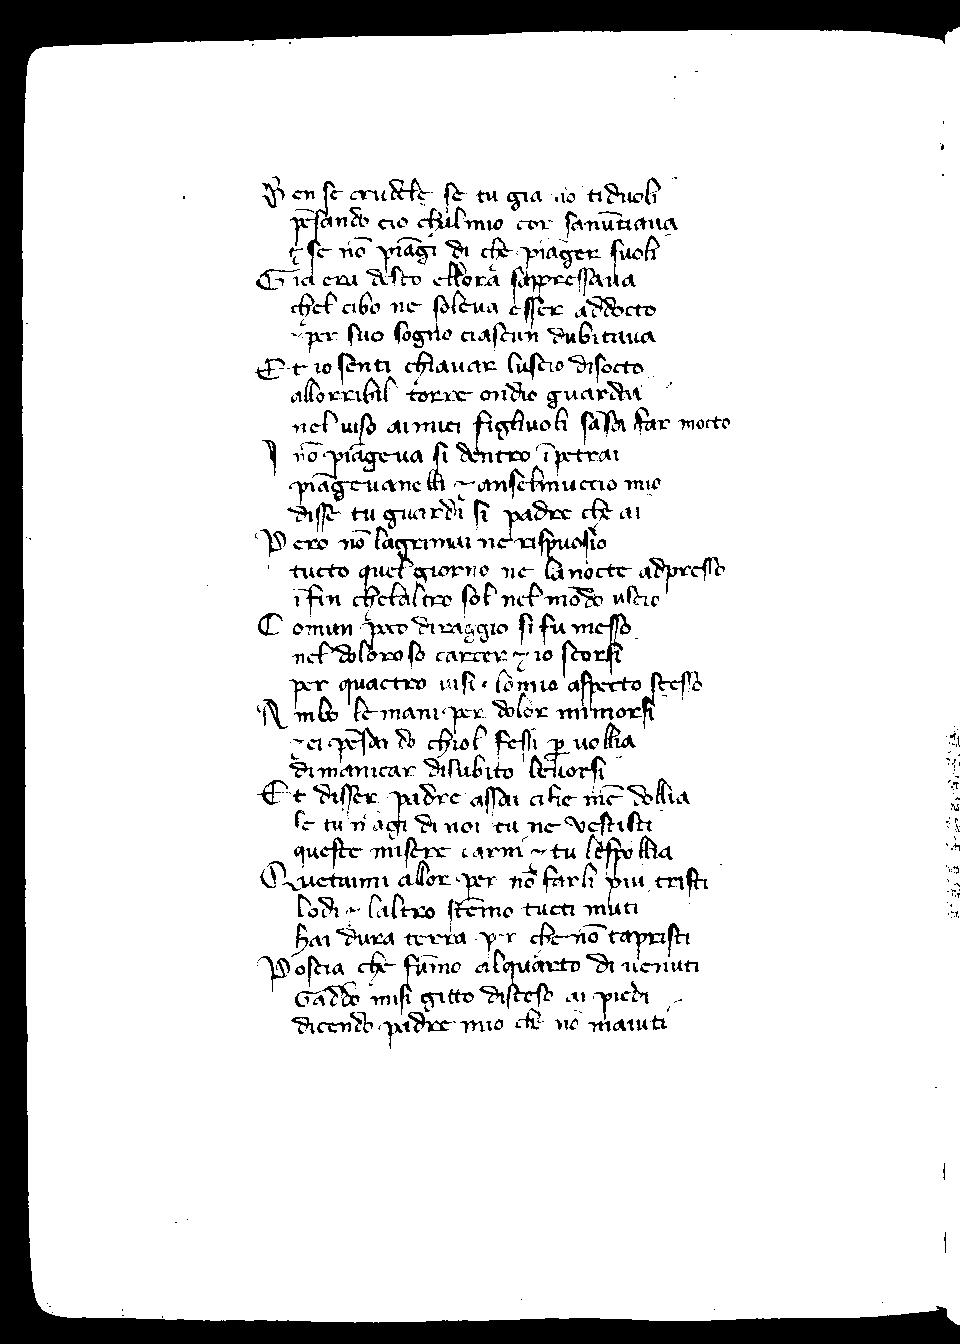 Ben se crudele se tu gia no tiduoli
pēsando cio chilmio cor sanūtiaua
⁊ se nō piāgi di che piāger suoli
Gia eran desto ellora sappressaua
chel cibo ne soleua esser addocto
⁊ per suo sogno ciascun dubitaua
Et io senti chiauar luscio disocto
allorribil torre ondio guardai
nel uiso aimiei figliuoli sāza far mocto
I nō piāgeua si dentro īpetrai
piāgeuanelli ⁊ anselmuccio mio
disse tu guardi si padre che ai
Pero nō lagrimai ne rispuosio
tucto quel giorno ne lanocte adpresso
īfin chelaltro sol nel mōdo uscio
Comun poco diraggio si fu messo
nel doloroso carcer ⁊ io scorsi
per quactro uisi lomio aspecto stesso
Ambo le mani per dolor mimorsi
⁊ ei pēsādo chiol fessi ꝑ uollia
dimanicar disubito leuorsi
Et disser padre assai cifie mē dollia
se tu māgi di noi tu ne uestisti
queste misere carni ⁊ tu lespollia
Quetaimi allor per nō farli piu tristi
lodi ⁊ laltro stēmo tucti muti
hai dura terra per che nō tapristi
Poscia che fūmo alquarto di uenuti
Gaddo misi gitto disteso ai piedi
dicendo padre mio che nō maiuti